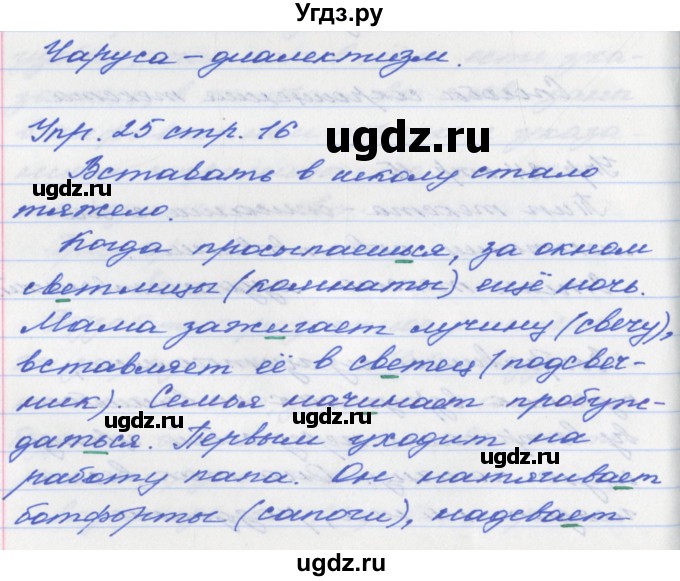 Угдз.ру
Чаруса – диалектизм.
Упр. 25 стр. 16
ugdz.ru
Вставать в школу стало
ugdz.ru
ugdz.ru
тяжело.
Когда просыпаешься, за окном
светлицы (комнаты) ещё ночь.
Мама зажигает лучину (свечу),
вставляет её в светец (подсвеч-
ник). Семья начинает пробуж-
ugdz.ru
даться. Первым уходит на
ugdz.ru
работу папа. Он натягивает
ботфорты (сапоги), надевает
ugdz.ru